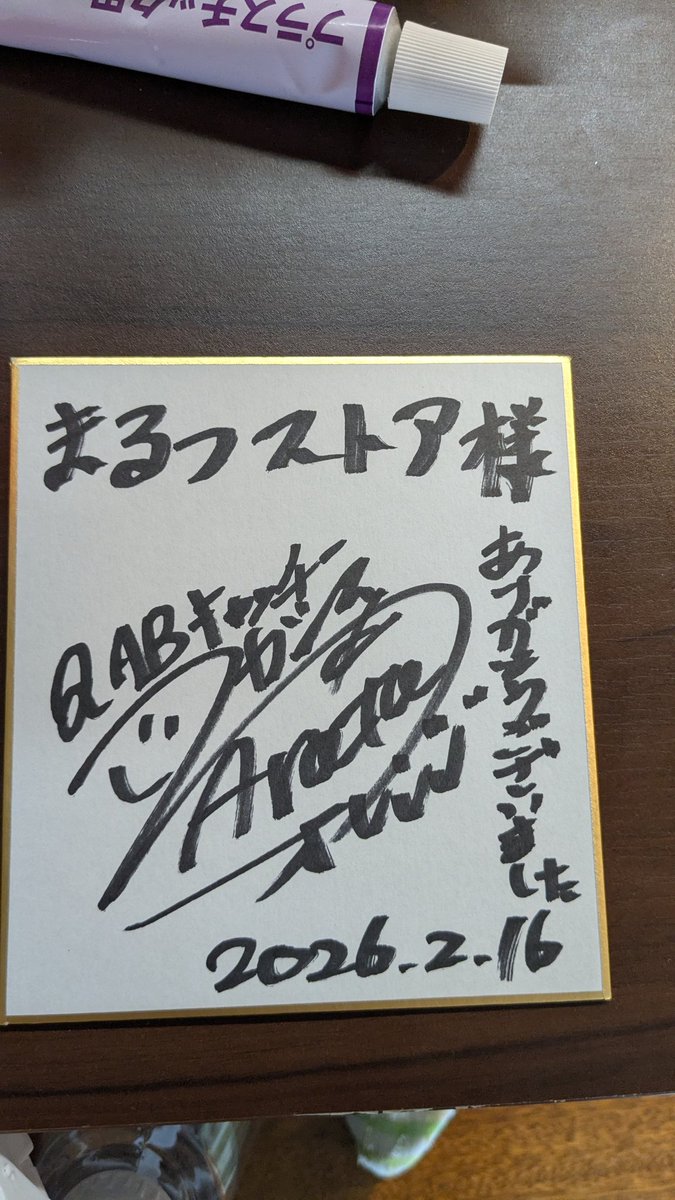 プラスチック用
まるつストア様
QABキャッチー
Arata
ありがとうございました
2026.2.16